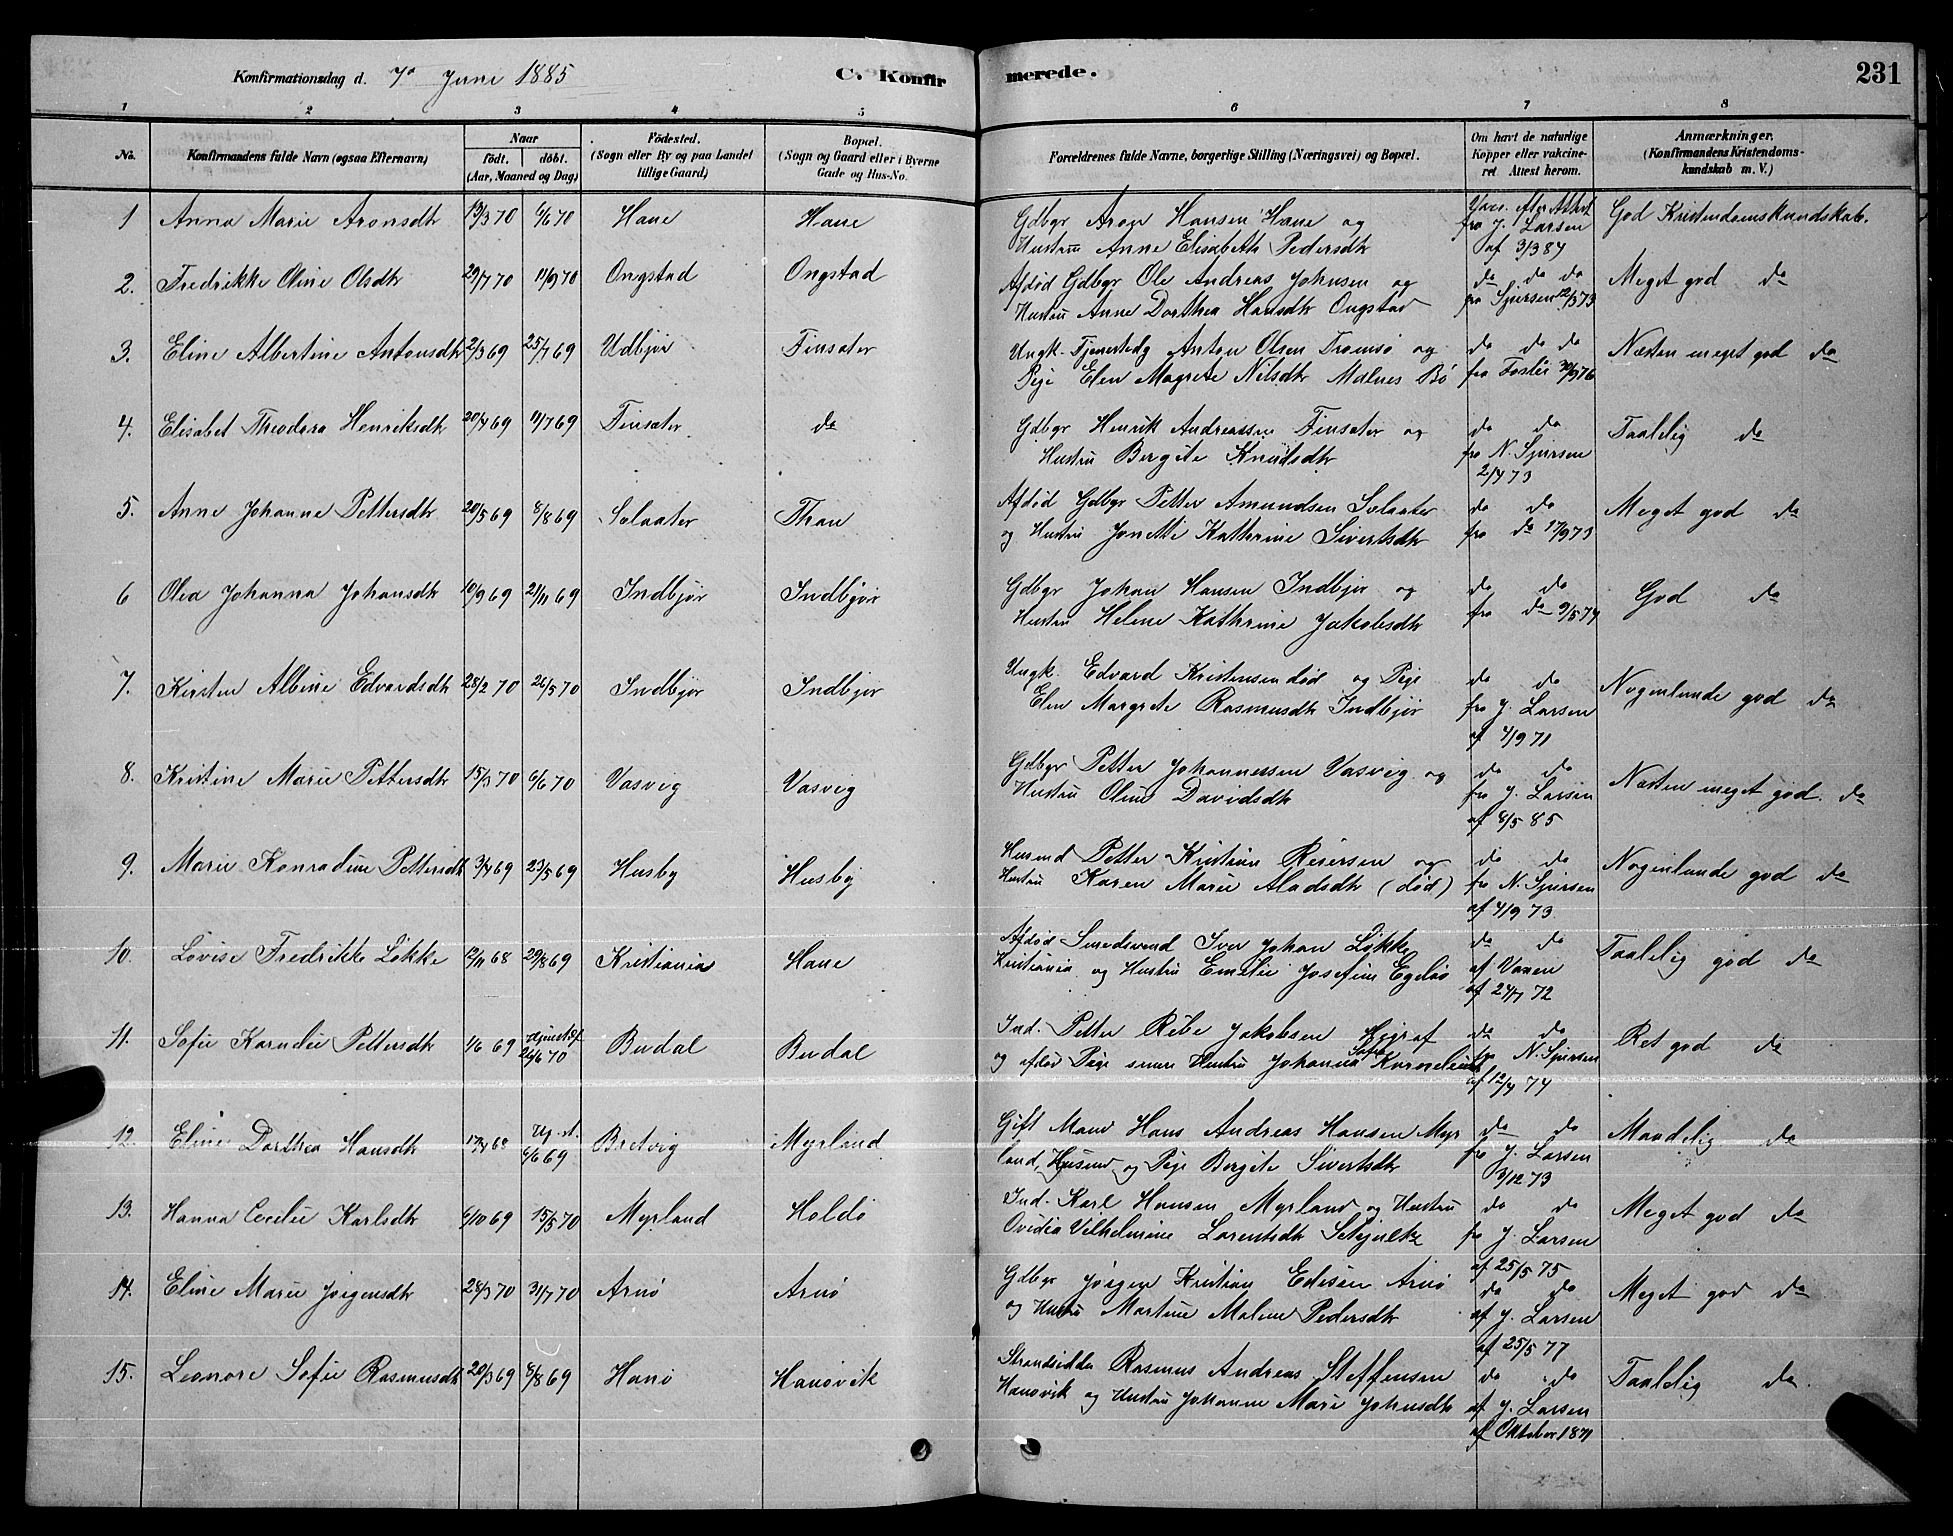 Konfirmationsdag d. 7de Juni 1885 C. Konfirmerede. 231
1 2 3 4 5 6 7 8
No. Konfirmandens fulde Navn (ogsaa Efternavn) Naar født. døbt. (Aar, Maaned og Dag) Fødested. (Sogn eller By og paa Landet tillige Gaard) Bopæl. (Sogn og Gaard eller i Byerne Gade og Hus-No. Forældrenes fulde Navne, borgerlige Stilling (Næringsvei) og Bopæl. Om havt de naturlige Kopper eller vakcineret Attest herom. Anmærkninger. (Konfirmandens Kristendomskundskab m. V.)
1 Anna Marie Aronsdtr 13/3 70 6/6 70 Hane Hane Gdbgr Aron Hansen Hane og Vacc. Attest God Kristendomskundskab.
Hustru Anne Elisabeth Pedersdtr fra J. Larsen af 3/3 84
2. Fredrikke Oline Olsdtr 29/7 70 11/9 70 Ongstad Ongstad Afdød Gdbgr Ole Andreas Johnsen og do do do Meget god do
Hustru Anne Dorthea Hansdtr Ongstad fra Sjursen 12/3 73
3. Eline Albertine Antonsdtr 2/3 69 25/7 69 Udbjør Finsæter Ungk. Tjenestedg Anton Olsen Tromsø og do do do Næsten meget god do
Pige Elen Magrete Nilsdtr Malnes Bø fra 30/9 76
4. Elisabet Theodora Henriksdtr 20/4 69 11/7 69 Finsæter do Gdbgr Henrik Andreassen Finsæter og do do Taalelig do
Hustru Bergite Knudsdtr fra N. Sjursen 2/4 73
5. Anne Johanne Pettersdtr 20/5 69 8/8 69 Selsater Thran Afdød Gdbgr Petter Amundsen Selsater do do Meget god do
og Hustru Jonette Kathrine Sivertsdtr fra do 17/9 73
6 Olea Johanna Johansdtr 10/9 69 21/11 69 Indbjør Indbjør Gdbgr Johan Hansen Indbjør og do do God do
Hustru Helene Kathrine Jakobsdtr fra do 9/5 74
7. Kirsten Albine Edvardsdtr 28/2 70 26/5 70 Indbjør Indbjør Ungk. Edvard Kristensen død og Pige do do Nogenlunde god do
Elen Margrete Rasmusdtr Indbjør fra J. Larsen af 4/9 71
8. Kristine Marie Pettersdtr 15/3 70 6/6 70 Vasvig Vasvig Gdbgr Petter Johannessen Vasvig og do do Næsten meget god. do
Hustru Oline Davidsdtr fra J. Larsen af 8/5 85
9. Marie Konradine Pettersdtr 3/4 69 23/5 69 Husby Husby Husmd Petter Kristian Reiersen og do do Nogenlunde god do
Hustru Karen Marie Aladsdtr (død) fra N. Sjursen af 4/9 73.
10. Lovise Fredrikke Løkke 12/11 68 29/8 69 Kristiania Hane Afdød Smedsvend Iver Johan Løkke do do Taalelig god do
Kristiania og Hustru Emilie Josefine Egeløv af 24/7 72
11. Sofie Kornelie Pettersdtr 1/6 69 Hjemdøbt 26/6 70 Budal Budal Ind. Petter Ribe Jakobsen do do Ret god do
og afdød Pige senere Hustru Johanna Sofie Kornelius fra N. Sjursen af 12/4 74
12. Eline Dorthea Hansdtr 17/4 68 Hj. st. 6/6 69 Bretvig Myrlind Gift Mand Hans Andreas Hansen Myr do do Maadelig do
land, Husmd og Pige Bergite Sivertsdtr fra J. Larsen 3/12 73
13. Hanna Cecilie Karlsdtr 6/10 69 15/5 70 Myrland Holdø Ind. Karl Hansen Myrland og Hustru do do Meget god do
Ovidia Vilhelmine Lorentsdtr fra J. Larsen af 25/5 75
14. Eline Marie Jørgensdtr 28/3 70 31/7 70 Arnø Arnø Gdbgr Jørgen Kristian Edisen Arnø do do Meget god do
og Hustru Martine Malene Pedersdtr af J. Larsen af 25/5 77
15. Leonore Sofie Rasmusdtr 20/3 69 8/8 69 Hanø Hanøvik Strandsidder Rasmus Andreas Steffensen do do Taalelig do.
Hanøvik og Hustru Johanne Marie Johnsdtr af J. Larsen af Oktober 1871